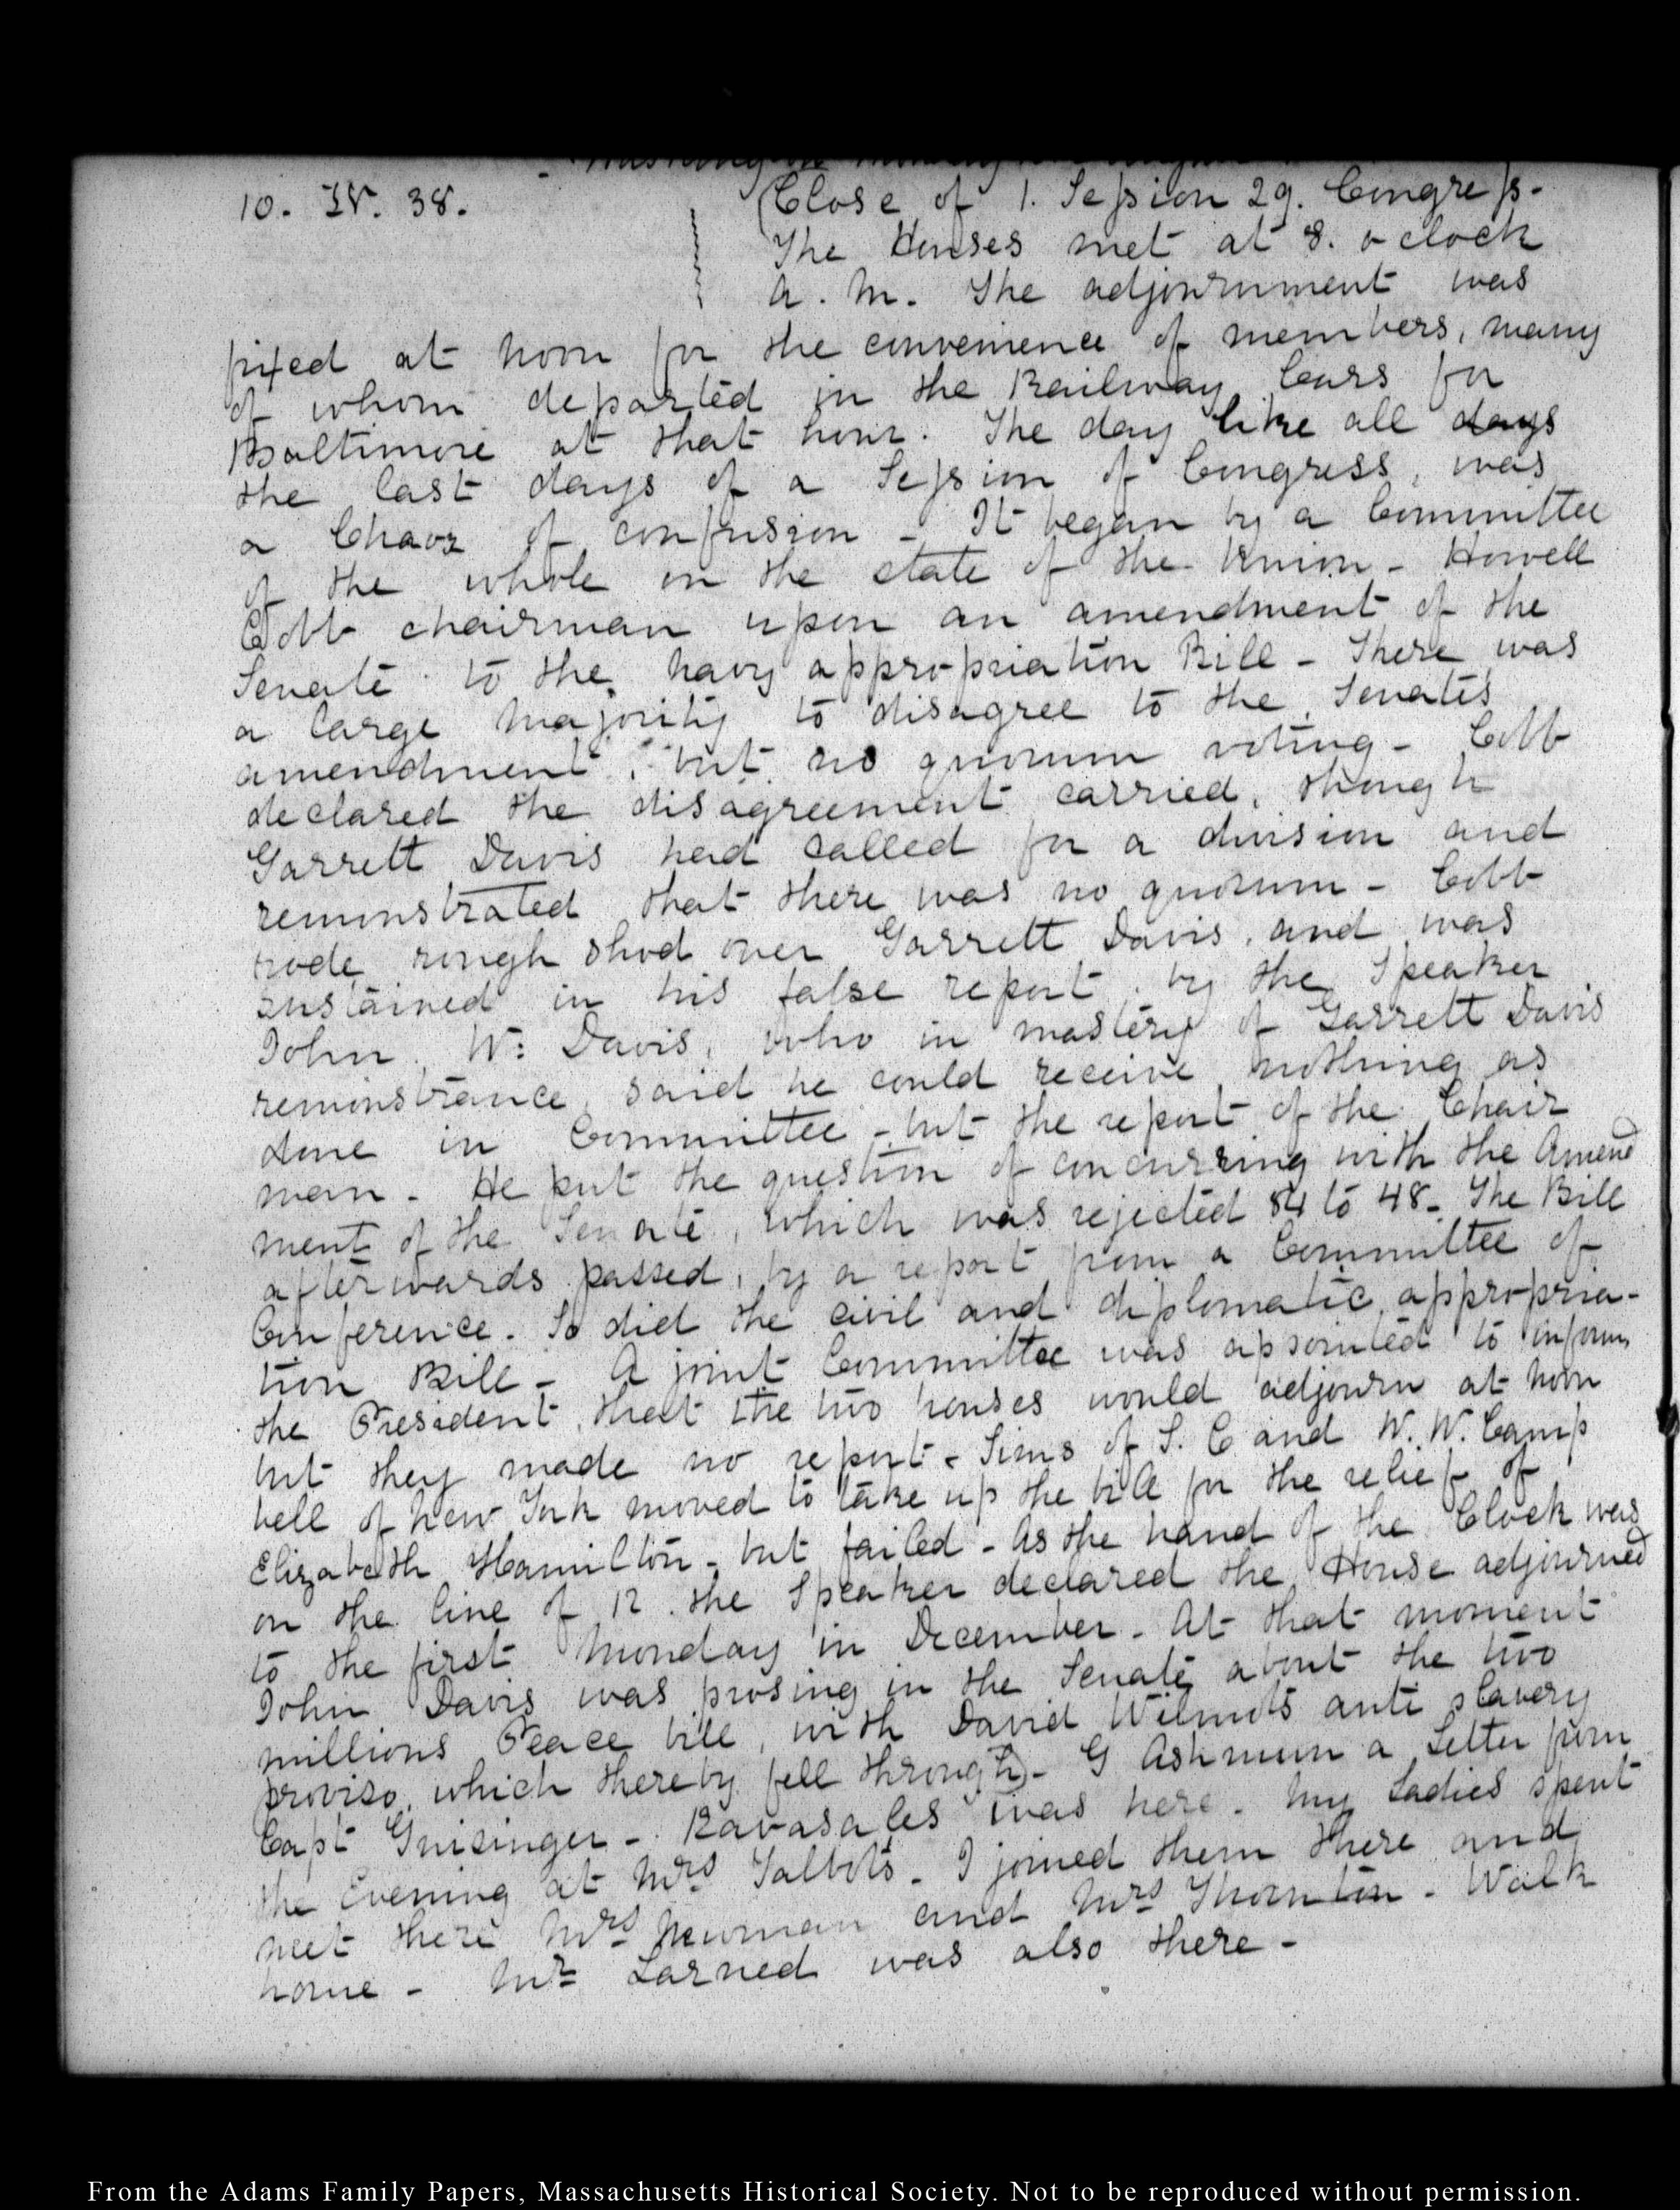 10. IV. 38.
(Close of 1. Session 29. Congress-
The Houses met at 8. o clock
a. m. The adjournment was
fixed at noon for the convenience of members, many
of whom departed in the Railway Cars for
Baltimore at that hour. The day like all days
the last days of a Session of Congress, was
a Chaos of confusion - It began by a Committee
of the whole on the state of the Union - Howell
Cobb chairman upon an amendment of the
Senate to the navy appropriation Bill - There was
a large majority to disagree to the Senates
amendment, but no quorum voting - Cobb
declared the disagreement carried, though
Garrett Davis had called for a division and
remonstrated that there was no quorum - Cobb
rode rough shod over Garrett Davis, and was
sustained in his false report, by the Speaker
John W: Davis, who in mastery of Garrett Davis
remonstrance, said he could receive nothing as
done in Committee - but the report of the Chair
man - He put the question of concurring with the Amend
ment of the Senate, which was rejected 84 to 48 - The Bill
afterwards passed, by a report from a Committee of
Conference. So did the civil and diplomatic appropria-
tion Bill - A joint Committee was appointed to inform
the President, that the two houses would adjourn at noon
but they made no report - Sims of S. C and W. W. Camp
bell of New York moved to take up the bill for the relief of
Elizabeth Hamilton - but failed - As the hand of the Clock was
on the line of 12. the Speaker declared the House adjourned
to the first Monday in December - At that moment
John Davis was prosing in the Senate about the two
millions Peace bill, with David Wilmots anti slavery
proviso, which thereby fell through) - G Ashmun a Letter from
Capt Guisinger - Ravasales was here - My Ladies spent
the Evening at Mrs Talbots - I joined them there and
met there Mrs Newman and Mrs Thornton - Walk
home - Mr Larned was also there -
From the Adams Family Papers, Massachusetts Historical Society. Not to be reproduced without permission.